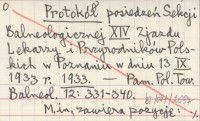 0
Protokół posiedzeń Sekcji
Balneologicznej XIV Zjazdu
Lekarzy i Przyrodników Pols-
kich w Poznaniu w dniu 13 IX
1933 r. 1933. — Pam. Pol. Tow.
Balneol. 12: 331-340.
M.in. zawiera pozycję: